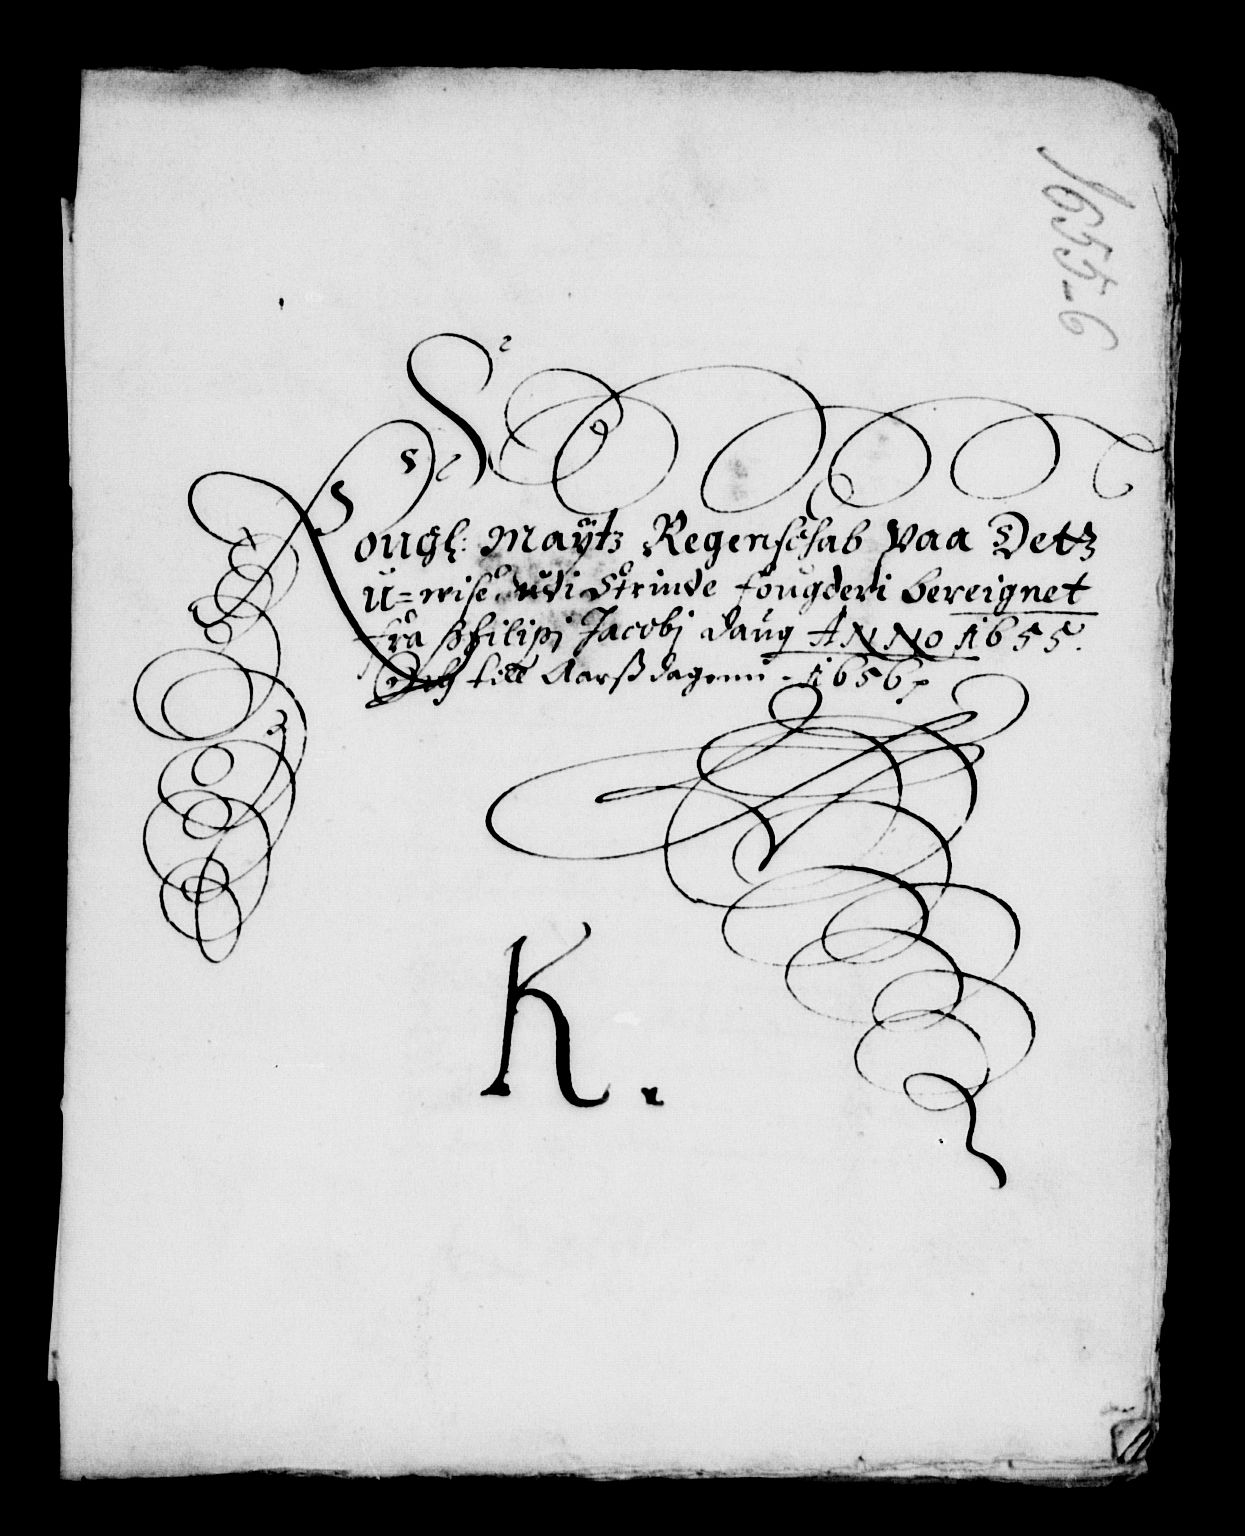 1655-6
Kongl: Maÿtz Regenschab paa Dett
U=wise, udi Strinde fougderi bereignet
fra Philipi Jacobi daug ANNO 1655.
Och till Aarsdagenn 1656
K.